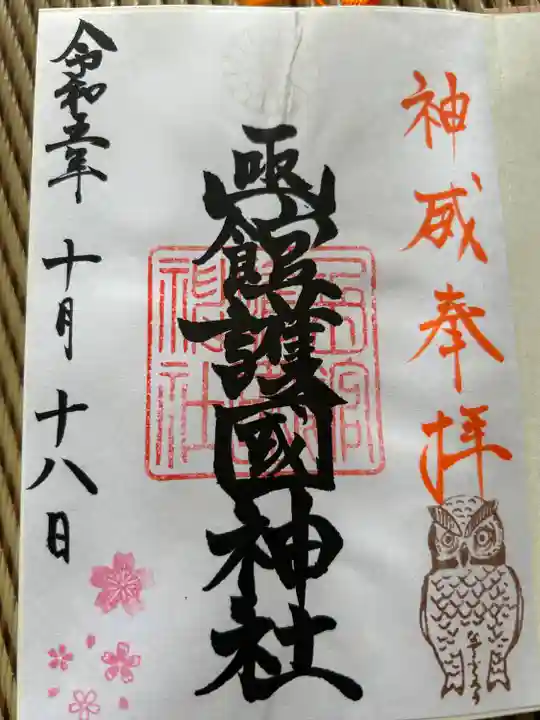 神威奉拝
函館護國神社
令和五年十月十八日